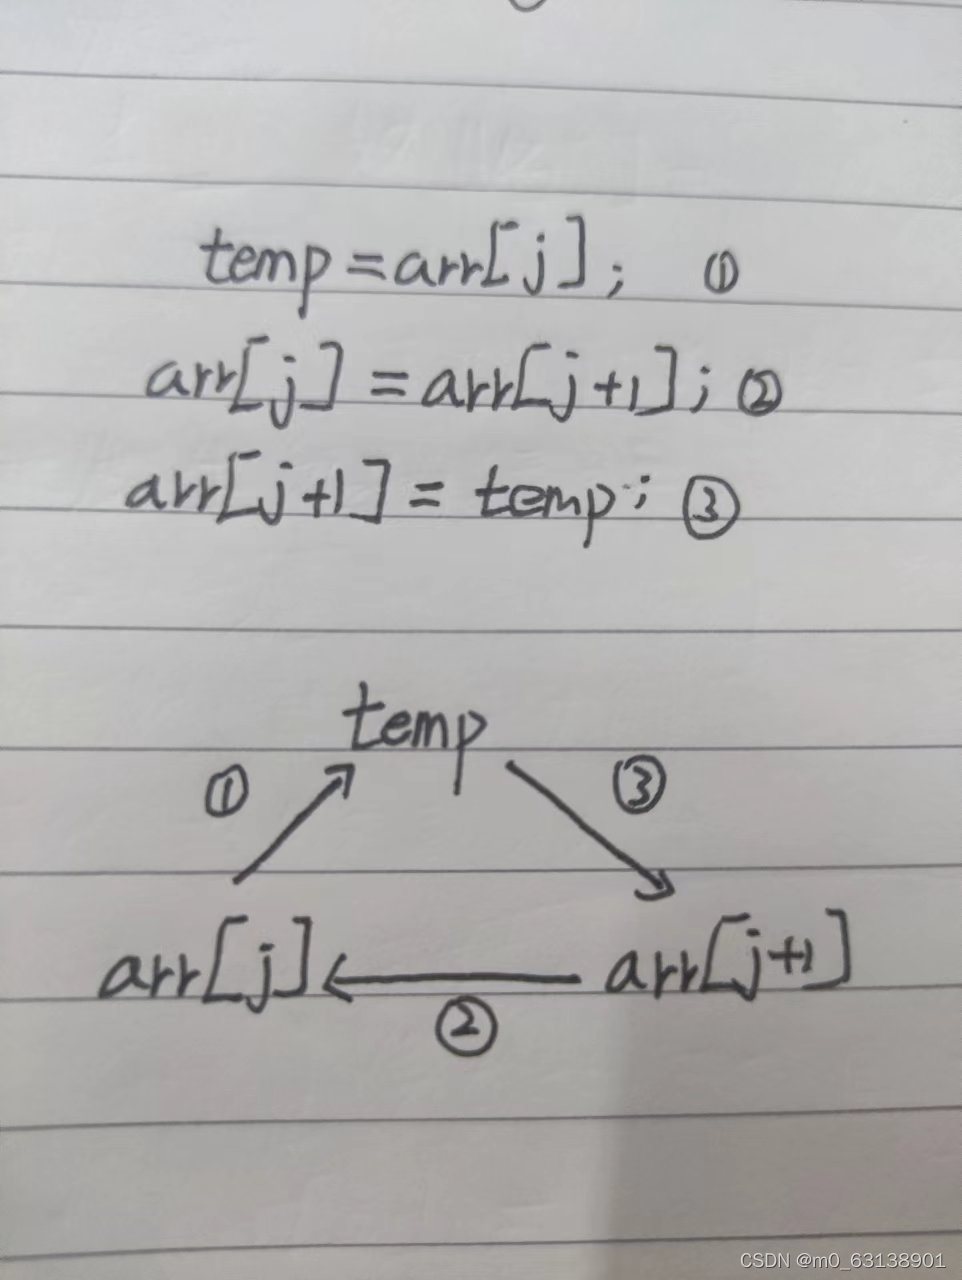 temp=arr[j]; ①
arr[j]=arr[j+1]; ②
arr[j+1]=temp; ③
temp
① ③
arr[j] arr[j+1]
②
CSDN @m0_63138901